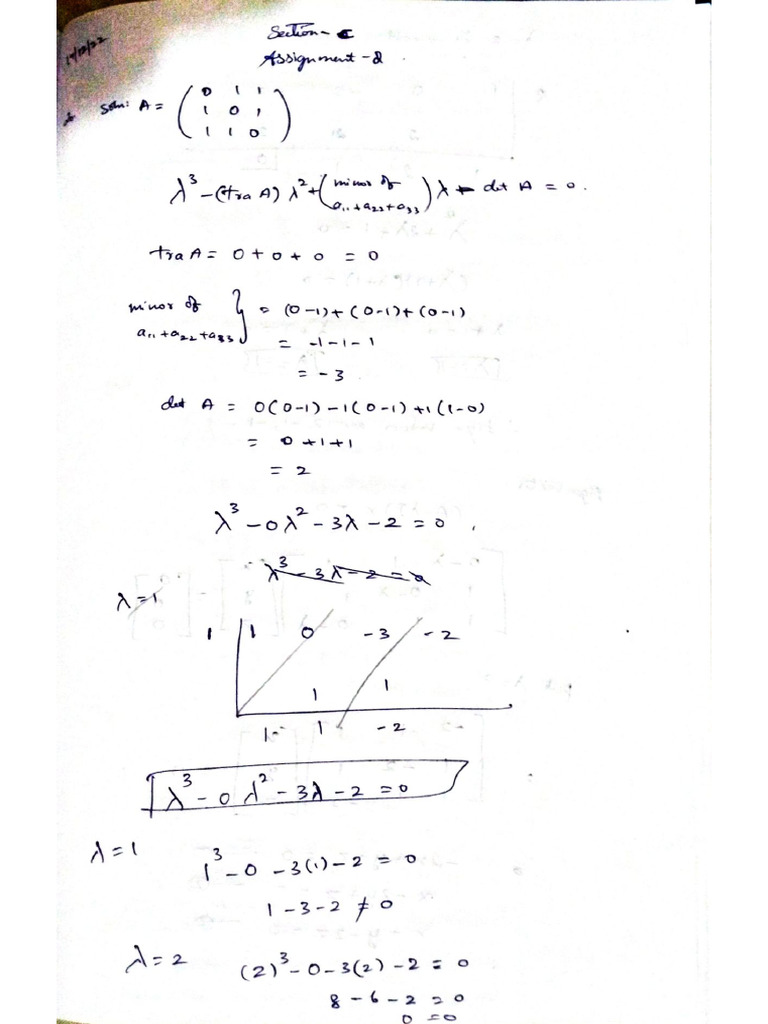 14/12/22
Section - C
Assignment - 2
Soln: A = ( 0 1 1
1 0 1
1 1 0 )
λ³ - (tra A) λ² + ( minor of a₁₁+a₂₂+a₃₃ ) λ - det A = 0.
tra A = 0 + 0 + 0 = 0
minor of a₁₁+a₂₂+a₃₃ } = (0-1)+(0-1)+(0-1)
= -1-1-1
= -3
det A = 0(0-1) -1(0-1) +1(1-0)
= 0+1+1
= 2
λ³ - 0λ² - 3λ - 2 = 0
λ³ - 3λ - 2 = 0
λ = 1
1 | 1 0 -3 -2
1 1
1 1 -2
λ³ - 0 λ² - 3λ - 2 = 0
λ = 1 1³ - 0 - 3(1) - 2 = 0
1 - 3 - 2 ≠ 0
λ = 2 (2)³ - 0 - 3(2) - 2 = 0
8 - 6 - 2 = 0
0 = 0